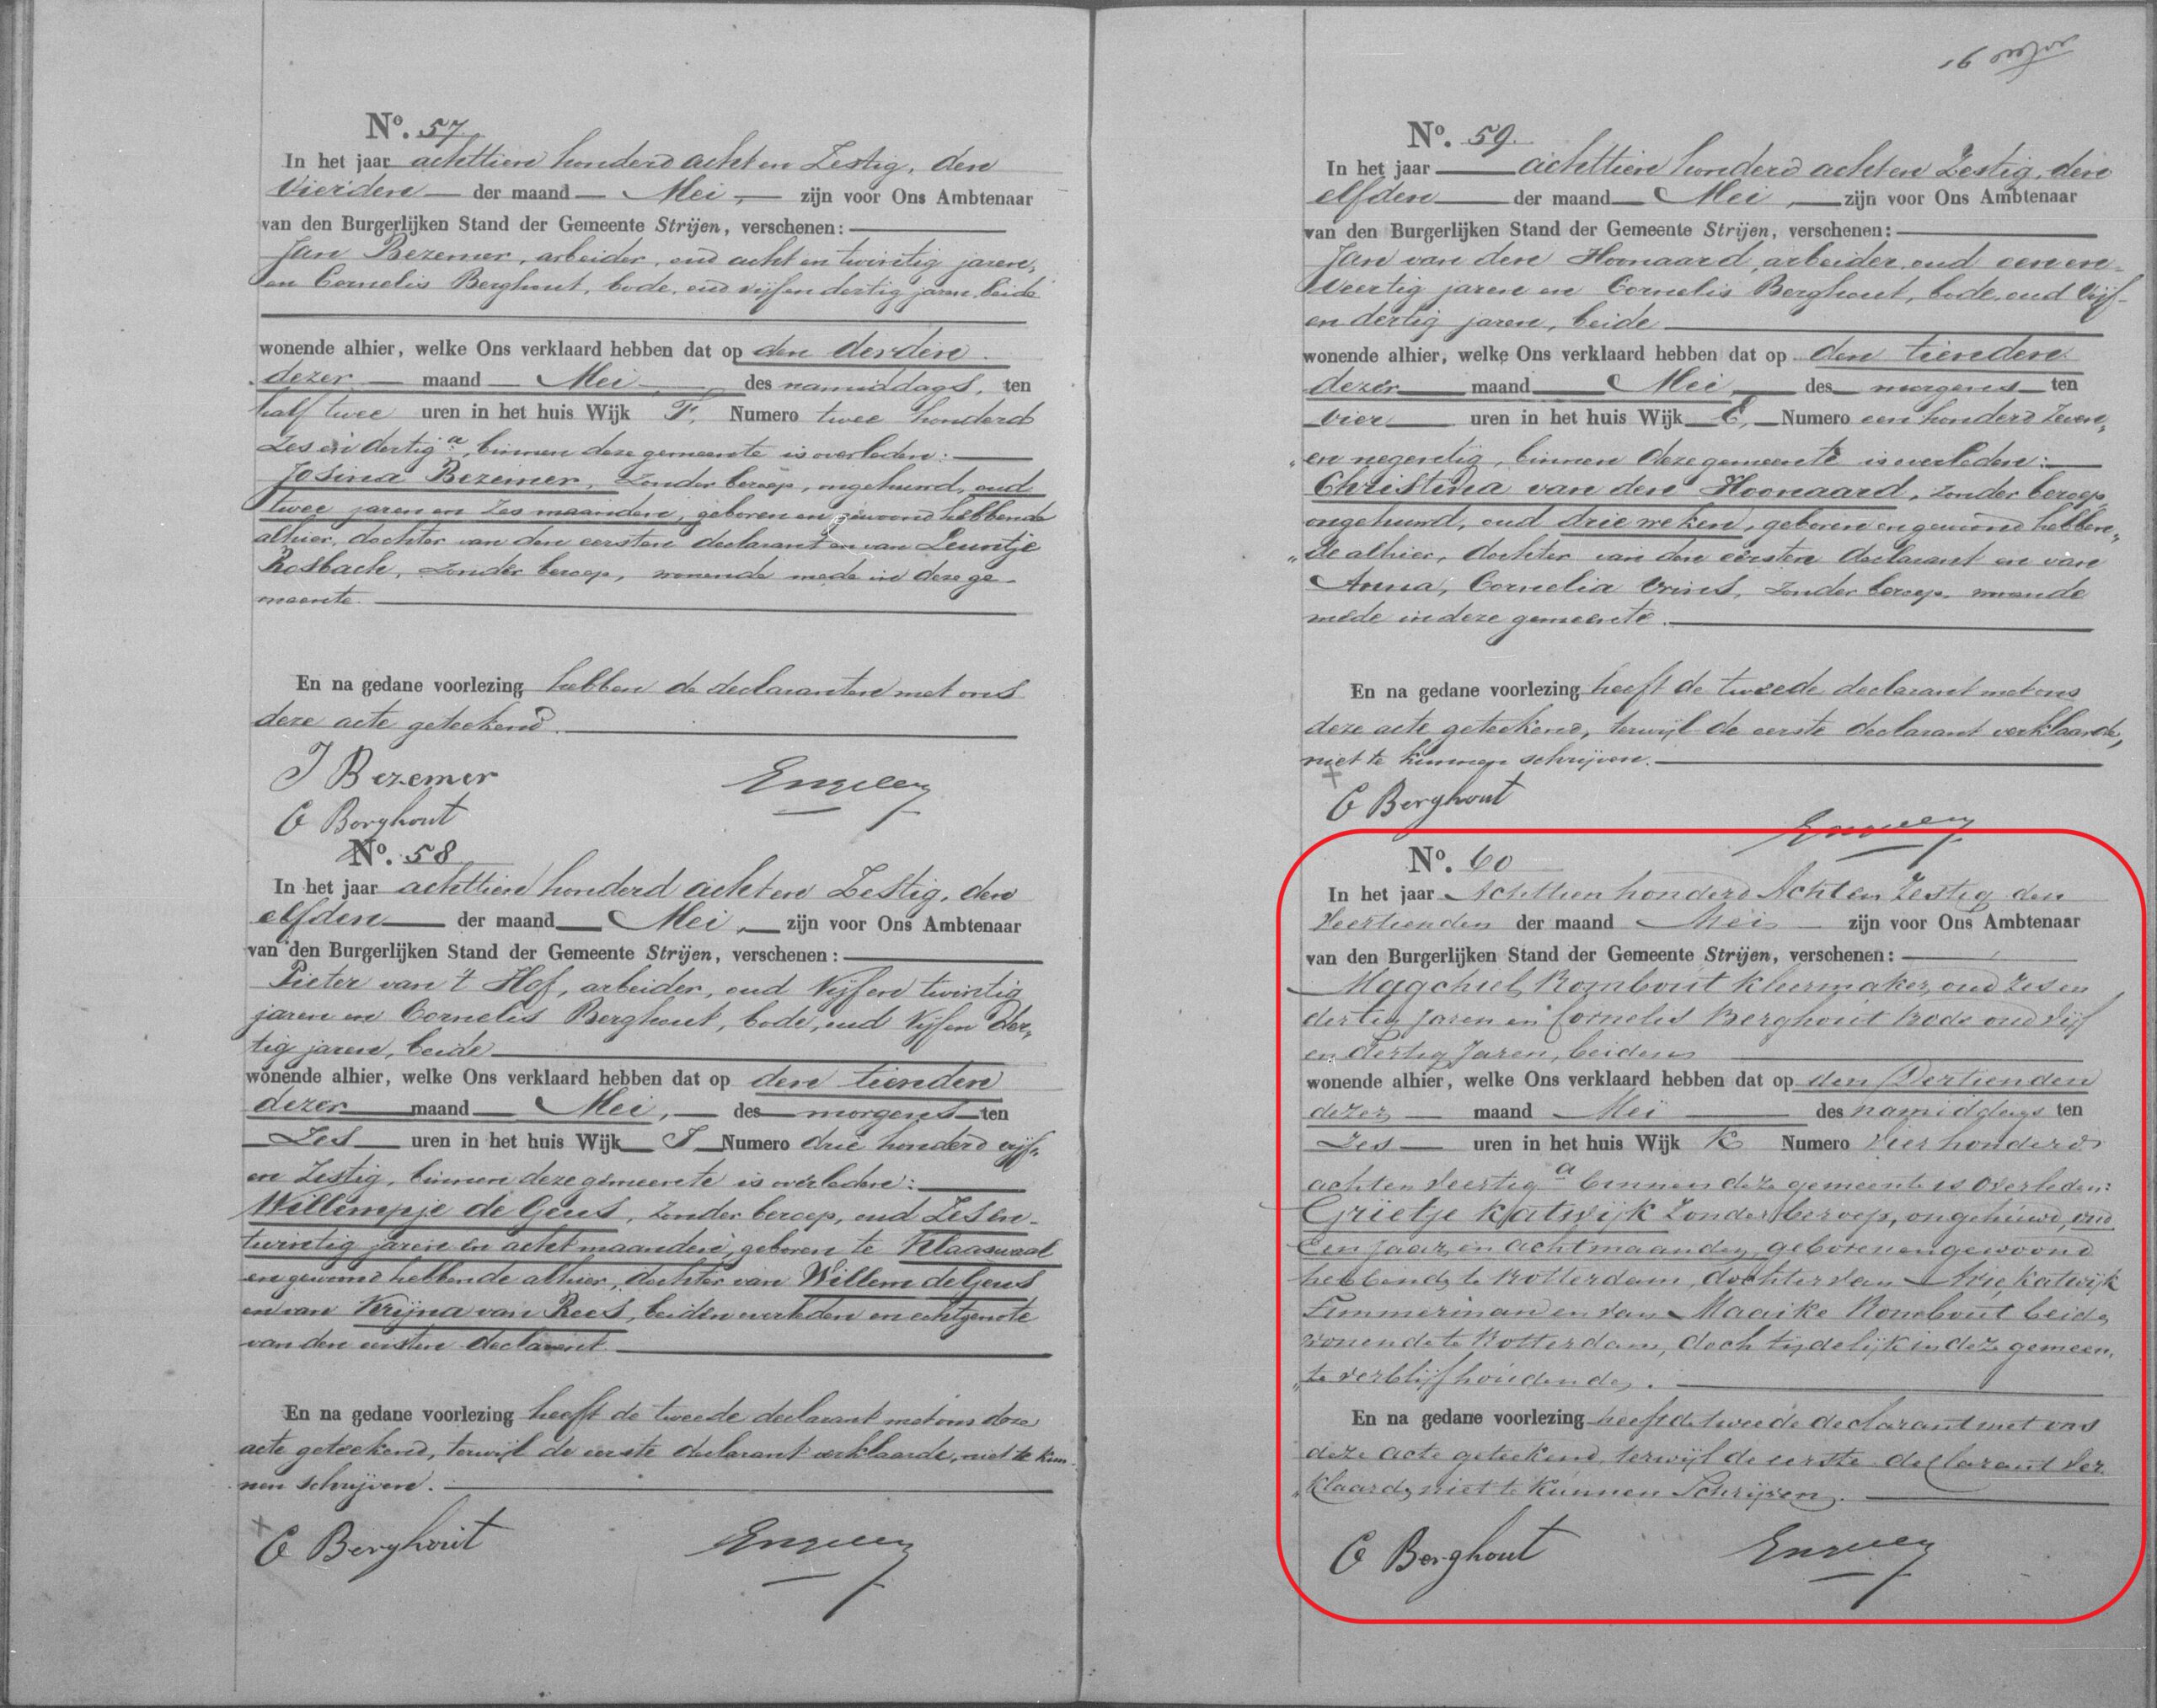 16
No. 57
In het jaar achttien honderd acht en Zestig, den
Vierden der maand Mei, zijn voor Ons Ambtenaar
van den Burgerlijken Stand der Gemeente Strijen, verschenen:
Jan Bezemer, arbeider, oud acht en twintig jaren,
en Cornelis Berghout, bode, oud vijf en dertig jaren, beide
wonende alhier, welke Ons verklaard hebben dat op den derden
dezer maand Mei, des namiddags, ten
half twee uren in het huis Wijk F, Numero twee honderd
Zes en dertig a, binnen deze gemeente is overleden:
Josina Bezemer, Zonder beroep, ongehuwd, oud
twee jaren en Zes maanden, geboren en gewoond hebbende
alhier, dochter van den eersten declarant en van Leuntje
Rosbach, zonder beroep, wonende mede in deze ge-
meente.
En na gedane voorlezing hebben de declaranten met ons
deze acte geteekend.
J Bezemer
C Berghout
No. 58
In het jaar achttien honderd acht en Zestig, den
elfden der maand Mei, zijn voor Ons Ambtenaar
van den Burgerlijken Stand der Gemeente Strijen, verschenen:
Pieter van 't Hof, arbeider, oud Vijf en twintig
jaren en Cornelis Berghout, bode, oud Vijf en der„
tig jaren, beide
wonende alhier, welke Ons verklaard hebben dat op den tienden
dezer maand Mei, des morgens ten
Zes uren in het huis Wijk J Numero drie honderd vijf„
en Zestig, binnen deze gemeente is overleden:
Willempje de Geus, Zonder beroep, oud Zes en-
twintig jaren en acht maanden, geboren te Klaaswaal
en gewoond hebbende alhier, dochter van Willem de Geus
en van Krijna van Rees, beiden overleden en echtgenote
van den eersten declarant.
En na gedane voorlezing heeft de tweede declarant met ons deze
acte geteekend, terwijl de eerste declarant verklaarde, niet te kun-
nen schrijven.
C Berghout
No. 59.
In het jaar achttien honderd acht en Zestig, den
elfden der maand Mei, zijn voor Ons Ambtenaar
van den Burgerlijken Stand der Gemeente Strijen, verschenen:
Jan van den Hoonaard, arbeider, oud een en-
Veertig jaren en Cornelis Berghout, bode, oud Vijf-
en dertig jaren, beide
wonende alhier, welke Ons verklaard hebben dat op den tienden
dezer maand Mei des morgens ten
vier uren in het huis Wijk E, Numero een honderd Zeven„
„en negentig, binnen deze gemeente is overleden:
Christina van den Hoonaard, zonder beroep
ongehuwd, oud drie weken, geboren en gewoond hebben„
„de alhier, dochter van den eersten declarant en van
Anna, Cornelia Vrins, Zonder beroep, wonende
mede in deze gemeente.
En na gedane voorlezing heeft de tweede declarant met ons
deze acte geteekend, terwijl de eerste declarant verklaarde,
niet te kunnen schrijven.
C Berghout
No. 60
In het jaar Achttien honderd Acht en Zestig den
Veertienden der maand Mei zijn voor Ons Ambtenaar
van den Burgerlijken Stand der Gemeente Strijen, verschenen:
Magchiel Rombout kleermaker, oud zes en
dertig Jaren en Cornelis Berghout Bode oud Vijf
en Dertig Jaren, beiden
wonende alhier, welke Ons verklaard hebben dat op den Dertienden
dezer maand Mei des namiddags ten
Zes uren in het huis Wijk K Numero Vier honderd
acht en Veertig a binnen deze gemeente is Overleden:
Grietje Katwijk Zonder beroep, ongehuwd, oud
Een Jaar en acht maanden, geboren en gewoond
hebbende te Rotterdam, dochter van Arie Katwijk
Timmerman en van Maaike Rombout beide
wonende te Rotterdam, doch tijdelijk in deze gemeen„
„te verblijf houdende.
En na gedane voorlezing heeft de tweede declarant met ons
deze acte geteekend, terwijl de eerste declarant Ver„
„klaarde niet te kunnen Schrijven.
C Berghout